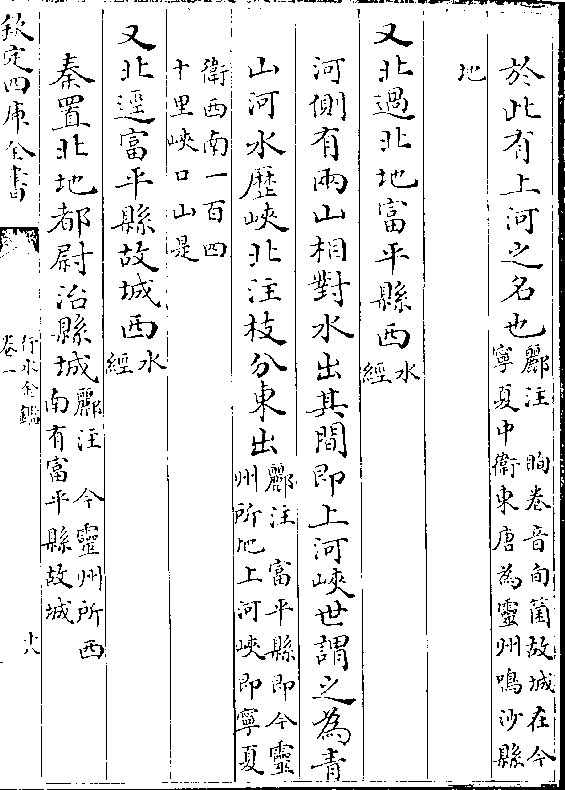 於此有上河之名也酈注　眴卷音旬箘故城在今
寧夏中衛東唐為靈州鳴沙縣
地
又北過北地富平縣西水
經
河側有兩山相對水出其間即上河峽世謂之為青
山河水歷峽北注枝分東出酈注　富平縣即今靈
州所地上河峽即寧夏
衛西南一百四
十里峽口山是
又北逕富平縣故城西水
經
秦置北地都尉治縣城酈注　今靈州所西
南有富平縣故城
欽定四庫全書
行水金鑑
卷一
十八